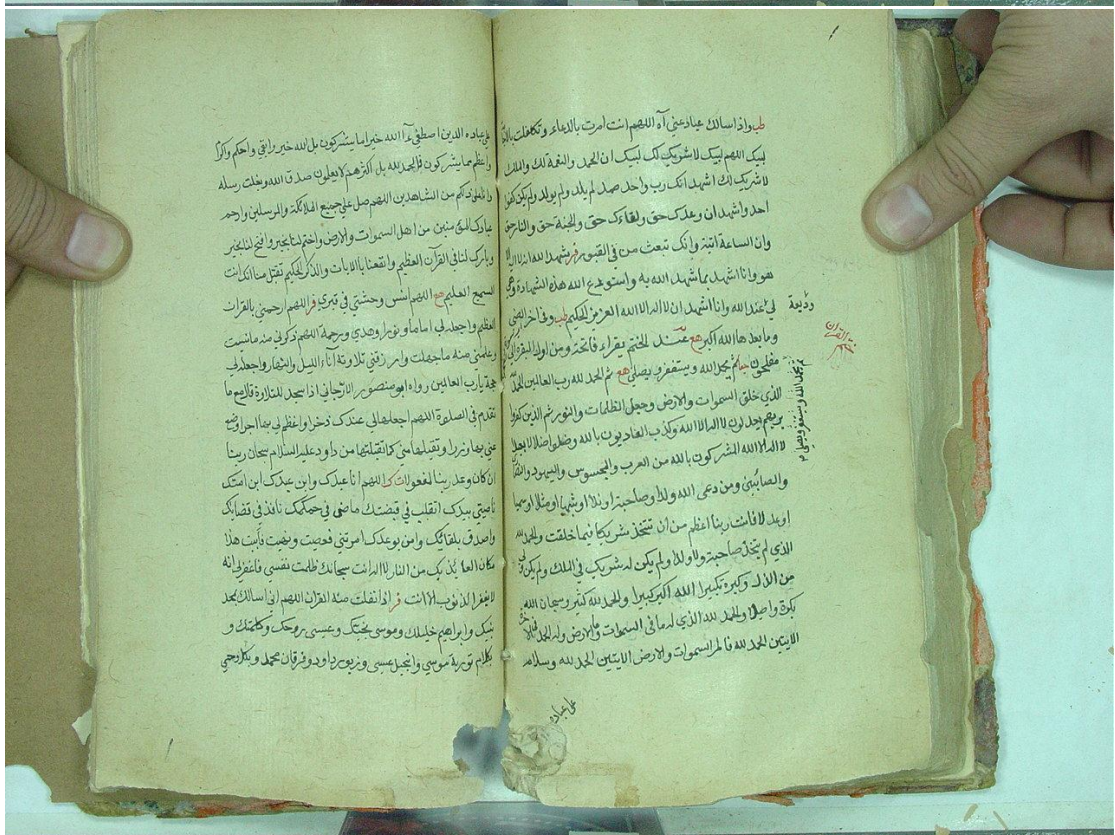 طب واذا سالك عبادي عني آه اللهم انت امرت بالدعاء وتكفلت
لبيك اللهم لبيك لا شريك لك لبيك ان الحمد والنعمة لك والملك
لا شريك لك اشهد انك رب واحد صمد لم يلد ولم يولد ولم يكن
احد واشهد ان وعدك حق ولقاءك حق والجنة حق والنار حق
وان الساعة اتية وانك تبعث من في القبور فر شهد الله انه لا اله الا
هو وانا اشهد بما شهد الله به واستودع الله هذه الشهادة وهي
وديعة
لي عند الله وانا اشهد ان لا اله الا الله العزيز الحكيم طب وفي اخر الضحى
ختم القران
وما بعدها الله اكبر هع عند الختم يقراء فاتحة ومن اول البقرة الى
مفلحون ثم يحمد الله ويستغفر ويصلي هع ثم الحمد لله رب العالمين الحمد
الذي خلق السموات والارض وجعل الظلمات والنور ثم الذين كفروا
بربهم يعدلون لا اله الا الله وكذب العاديون بالله وضلوا ضلالا
لا اله الا الله المشركون بالله من العرب والمجوس واليهود
والصابئين ومن دعى لله ولدا وصاحبة او ندا او شبها او مثلا او سميا
او عدلا فانت ربنا اعظم من ان تتخذ شريكا فيما خلقت والحمد لله
الذي لم يتخذ صاحبة ولا ولدا ولم يكن له شريك في الملك ولم يكن
من الذل وكبره تكبيرا الله اكبر كبيرا والحمد لله كثيرا وسبحان الله
بكرة واصيلا والحمد لله الذي له ما في السموات وما في الارض وله الحمد
الايتين الحمد لله فاطر السموات والارض الايتين الحمد لله وسلام
على عباده
على عباده الذين اصطفى ءآ الله خير اما يشركون بل الله خير وابقى واحكم واكرم
واعظم مما يشركون فالحمد لله بل اكثرهم لا يعلمون صدق الله وبلغت رسله
وانا على ذلكم من الشاهدين اللهم صل على جميع الملائكة والمرسلين وارحم
عبادك المؤمنين من اهل السموات والارض واختم لنا بخير وافتح لنا بخير
وبارك لنا في القرآن العظيم وانفعنا بالايات والذكر الحكيم تقبل منا انك انت
السميع العليم هع اللهم انس وحشتي في قبري فر اللهم ارحمني بالقران
العظيم واجعله لي اماما ونورا وهدي ورحمة اللهم ذكرني منه ما نسيت
وعلمني منه ما جهلت وارزقني تلاوته اناء الليل والنهار واجعله لي
حجة يارب العالمين رواه ابو منصور الارجاني اذا سجد للتلاوة قال مع ما
تقدم في الصلوة اللهم اجعلها لي عندك ذخرا واعظم لي بها اجرا وضع
عني بها وزرا وتقبلها مني كما تقبلتها من داود عليه السلام سبحان ربنا
ان كان وعد ربنا لمفعولا اللهم انا عبدك وابن عبدك ابن امتك
ناصيتي بيدك اتقلب في قبضتك ماضي في حكمك نافذ في قضاءك
واصدق بلقائك وامن بوعدك امرتني فعصيت ونهيت فأبيت هذا
مكان العائذ بك من النار لا اله الا انت سبحانك ظلمت نفسي فاغفر لي انه
لا يغفر الذنوب الا انت فر اذا تفلت منه القران اللهم اني اسالك بمحمد
نبيك وابراهيم خليلك وموسى نجيك وعيسى روحك وكلمتك و
بكلام تورية موسي وانجيل عيسى وزبور داود وفرقان محمد وبكل وحي